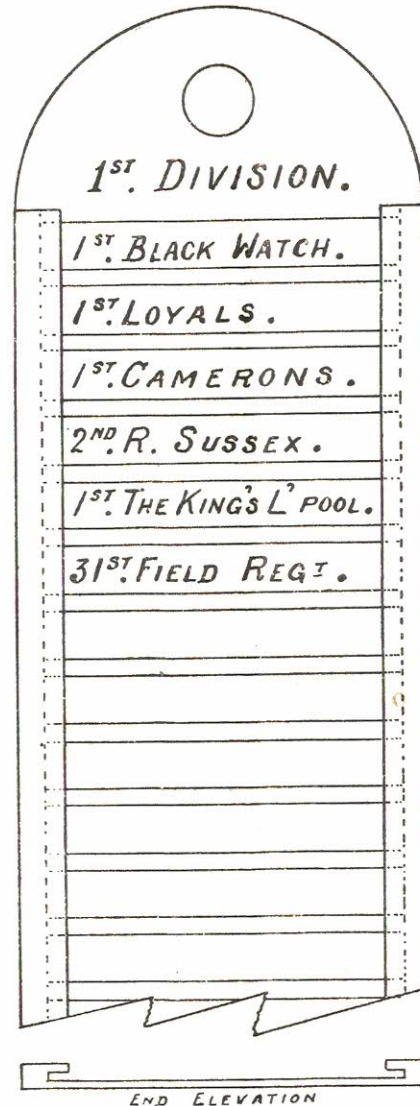 1ST. DIVISION.
1ST. BLACK WATCH.
1ST. LOYALS.
1ST. CAMERONS.
2ND. R. SUSSEX.
1ST. THE KING'S L'POOL.
31ST. FIELD REGT.
END ELEVATION